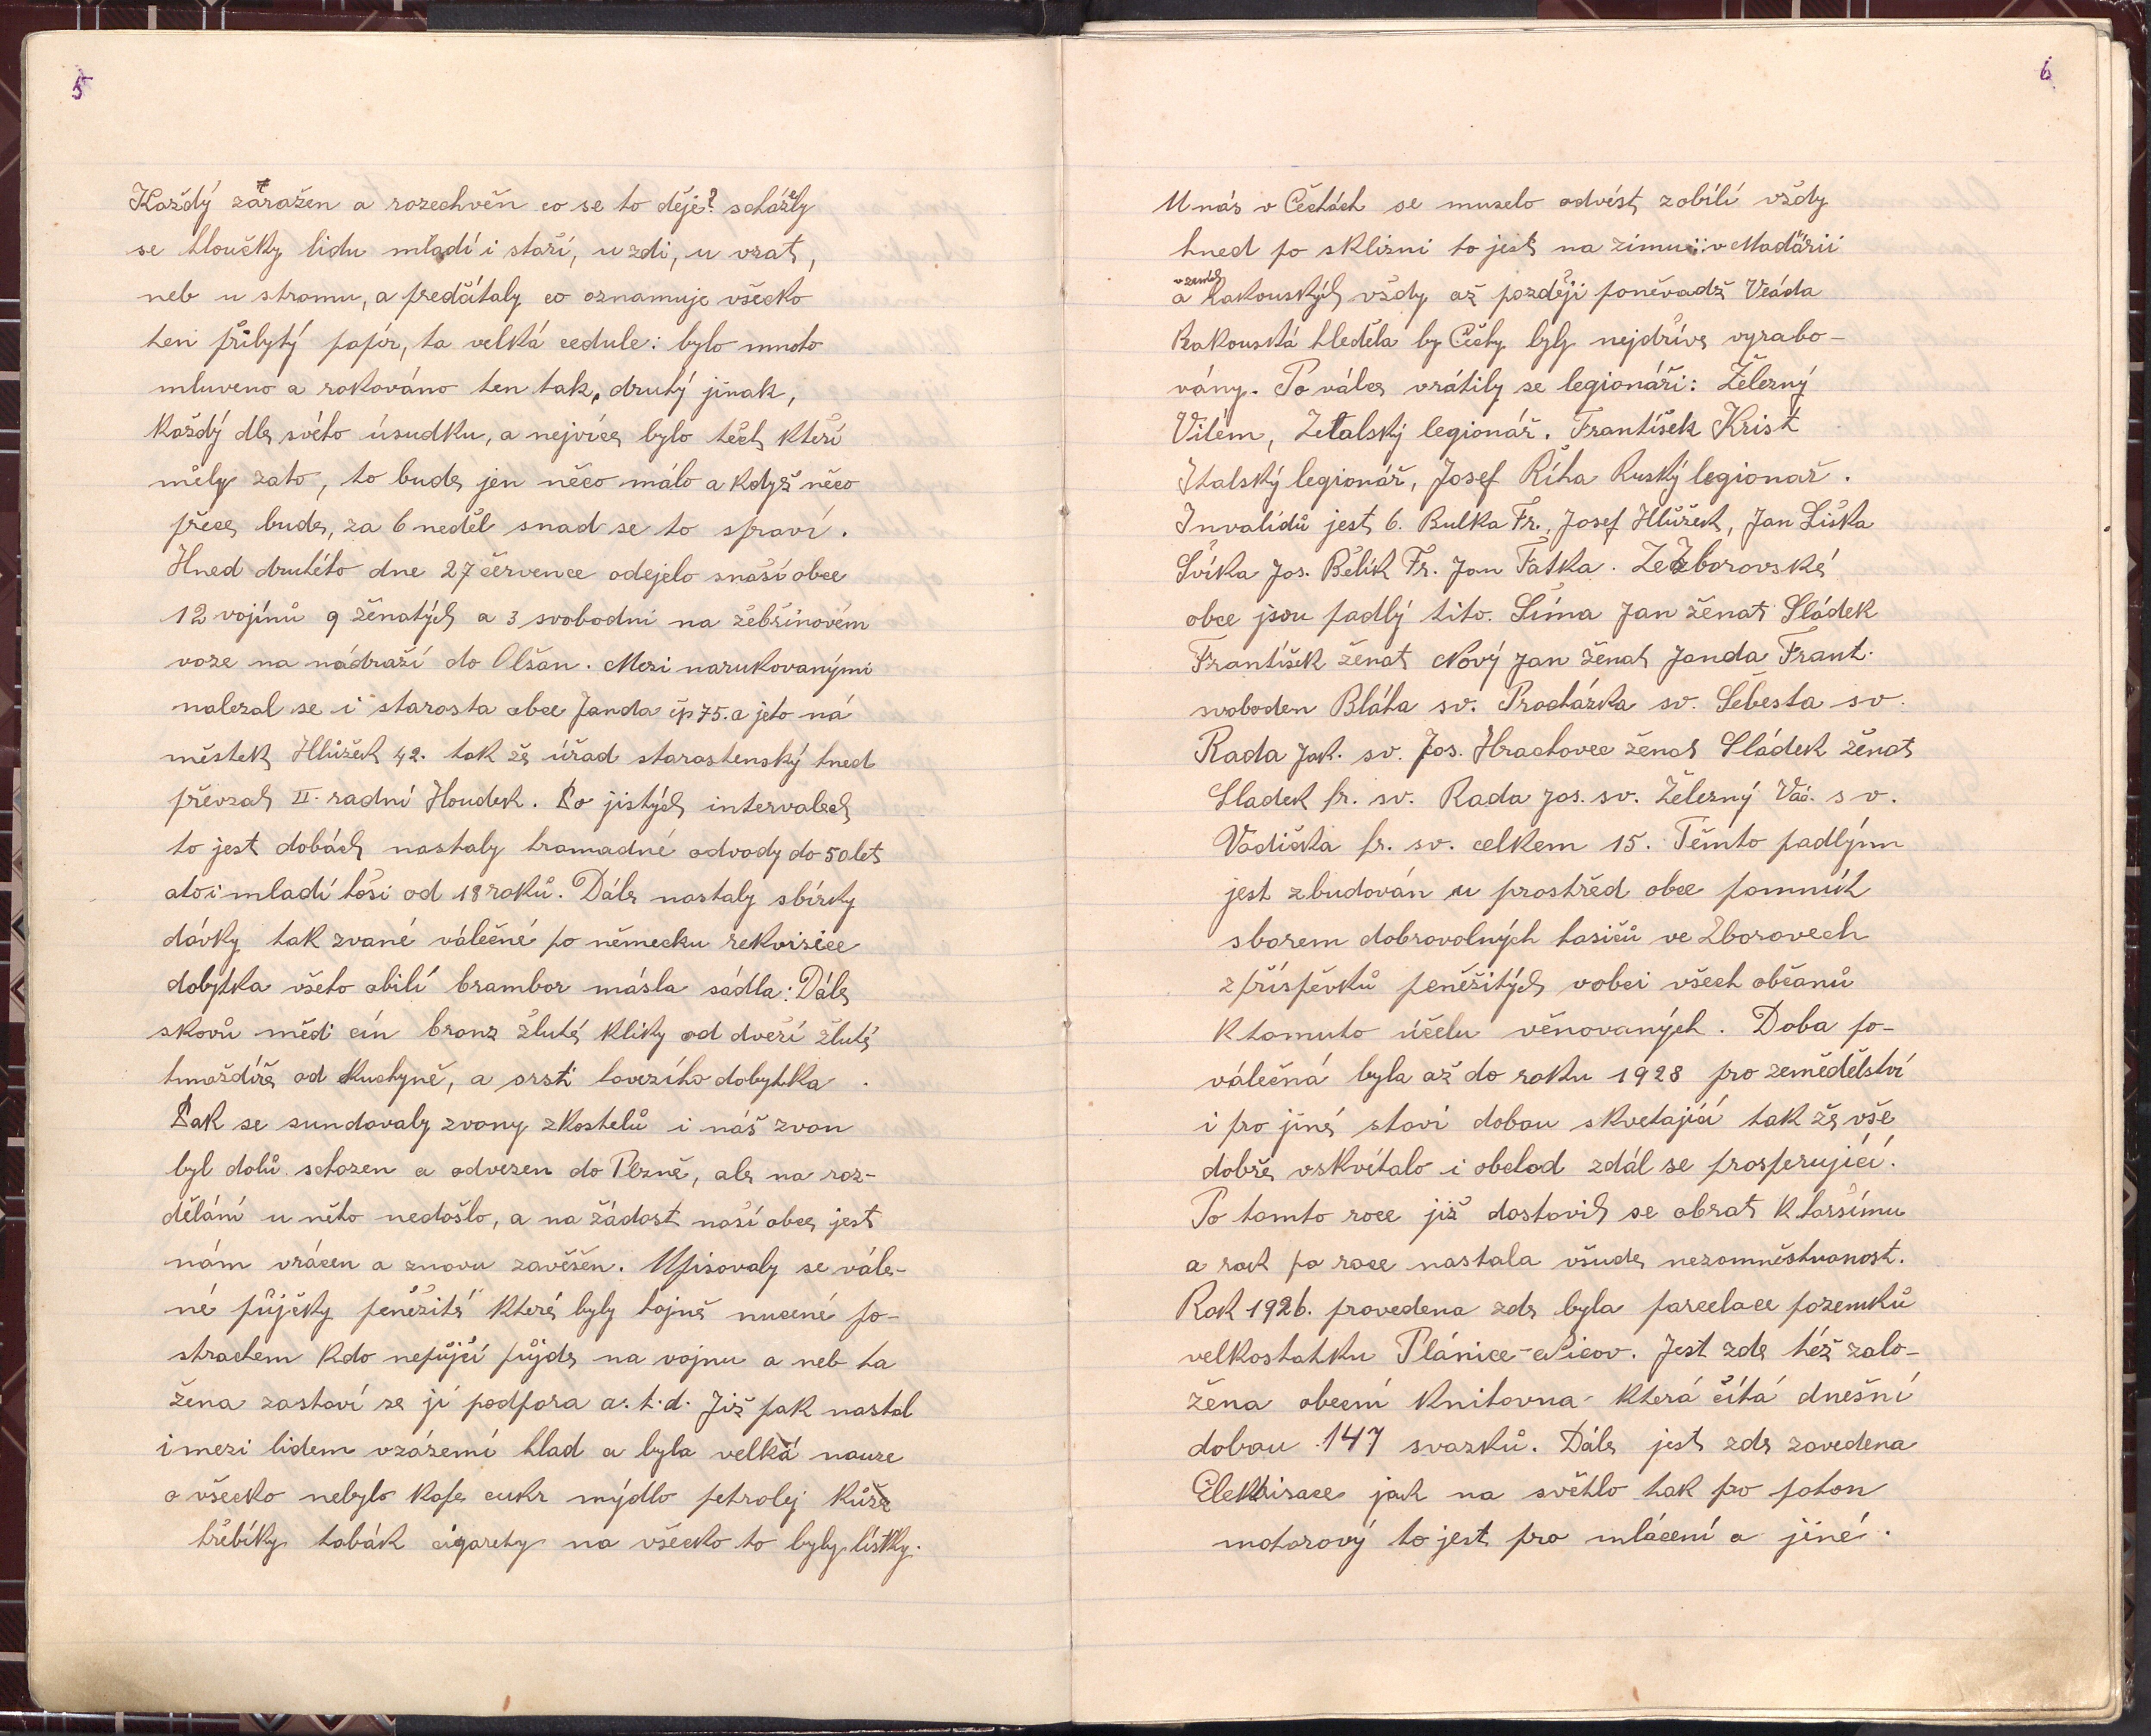 5
Každý zaražen a rozechvěn co se to děje? scházely
se hloučky lidu mladí i staří, u zdi, u vrat,
neb u stromu, a předčítaly co oznamuje všecko
ten přibytý papír, ta velká cedule: bylo mnoho
mluveno a rokováno ten tak, druhý jinak,
každý dle svého úsudku, a nejvíce bylo těch kteří
měly zato, to bude jen něco málo a když něco
přece bude, za 6 neděl snad se to spraví.
Hned druhého dne 27 července odejelo snaší obce
12 vojínů 9 ženatých a 3 svobodní na žebřinovém
voze na nádraží do Olšan. Mezi narukovanými
nalezal se i starosta obce Janda čp 75. a jeho ná
městek Hlůžek 42. tak že úřad starostenský hned
převzal II. radní Houdek. Po jistých intervalech
to jest dobách nastaly hromadné odvody do 50 let
atoi mladí hoši od 18 roků. Dále nastaly sbírky
dávky tak zvané válečné po německu rekvisice
dobytka všeho obilí brambor másla sádla: Dále
skovů mědi cín bronz žluté kliky od dveří žluté
hmoždíře od kuchyně, a srsti hovezího dobytka.
Pak se sundavaly zvony zkostelů i náš zvon
byl dolů schozen a odvezen do Plzně, ale na roz-
dělání u něho nedošlo, a na žádost naší obce jest
nám vrácen a znovu zavěšen. Upisovaly se vále-
né půjčky peněžité které byly hojně nucené po-
strachem kdo nepůjčí půjde na vojnu a neb ta
žena zastaví se jí podpora a. t. d. Již pak nastal
i mezi lidem vzázemí hlad a byla velká nouze
o všecko nebylo kafe cukr mýdlo petrolej kůže
hřebíky tabák cigarety na všecko to byly lístky.
6
U nás v Čechách se muselo odvést zobilí vždy
hned po sklizni to jest na zimu: v Maďárii
vzemích
a Rakouských vždy až později poněvadž Vláda
Rakouská hleděla by Čechy byly nejdříve vyrabo-
vány. Po válce vrátily se legionáři: Železný
Vilém, Italský legionář. František Krist
Italský legionář, Josef Říha Ruský legionař.
Invalidů jest 6. Bulka Fr., Josef Hlůžek, Jan Liška
Švíka Jos. Bělík Fr. Jan Fatka. Ze Zborovské
obce jsou padlý tito. Šíma Jan ženat Sládek
František ženat Nový Jan ženat Janda Frant.
svoboden Bláha sv. Procházka sv. Šebesta sv.
Rada Jak. sv. Jos. Hrachovec ženat Sládek ženat
Sladek fr. sv. Rada Jos. sv. Železný Vác. sv.
Vodička fr. sv. celkem 15. Těmto padlým
jest zbudován u prostřed obce pomník
sborem dobrovolných hasičů ve Zborovech
z příspěvků peněžitých vobci všech občanů
k tomuto účelu věnovaných. Doba po-
válečná byla až do roku 1928 pro zemědělství
i pro jiné stavi dobou skvetající tak že vše
dobře vzkvítalo i obchod zdál se prosperující.
Po tomto roce již dostavil se obrat k horšímu
a rok po roce nastala všude nezaměstnanost.
Rok 1926. provedena zde byla parcelace pozemků
velkostatku Plánice-Nicov. Jest zde též zalo-
žena obecní knihovna která čítá dnešní
dobou 147 svazků. Dále jest zde zavedena
Elektrisace jak na světlo tak pro pohon
motorový to jest pro mlácení a jiné.